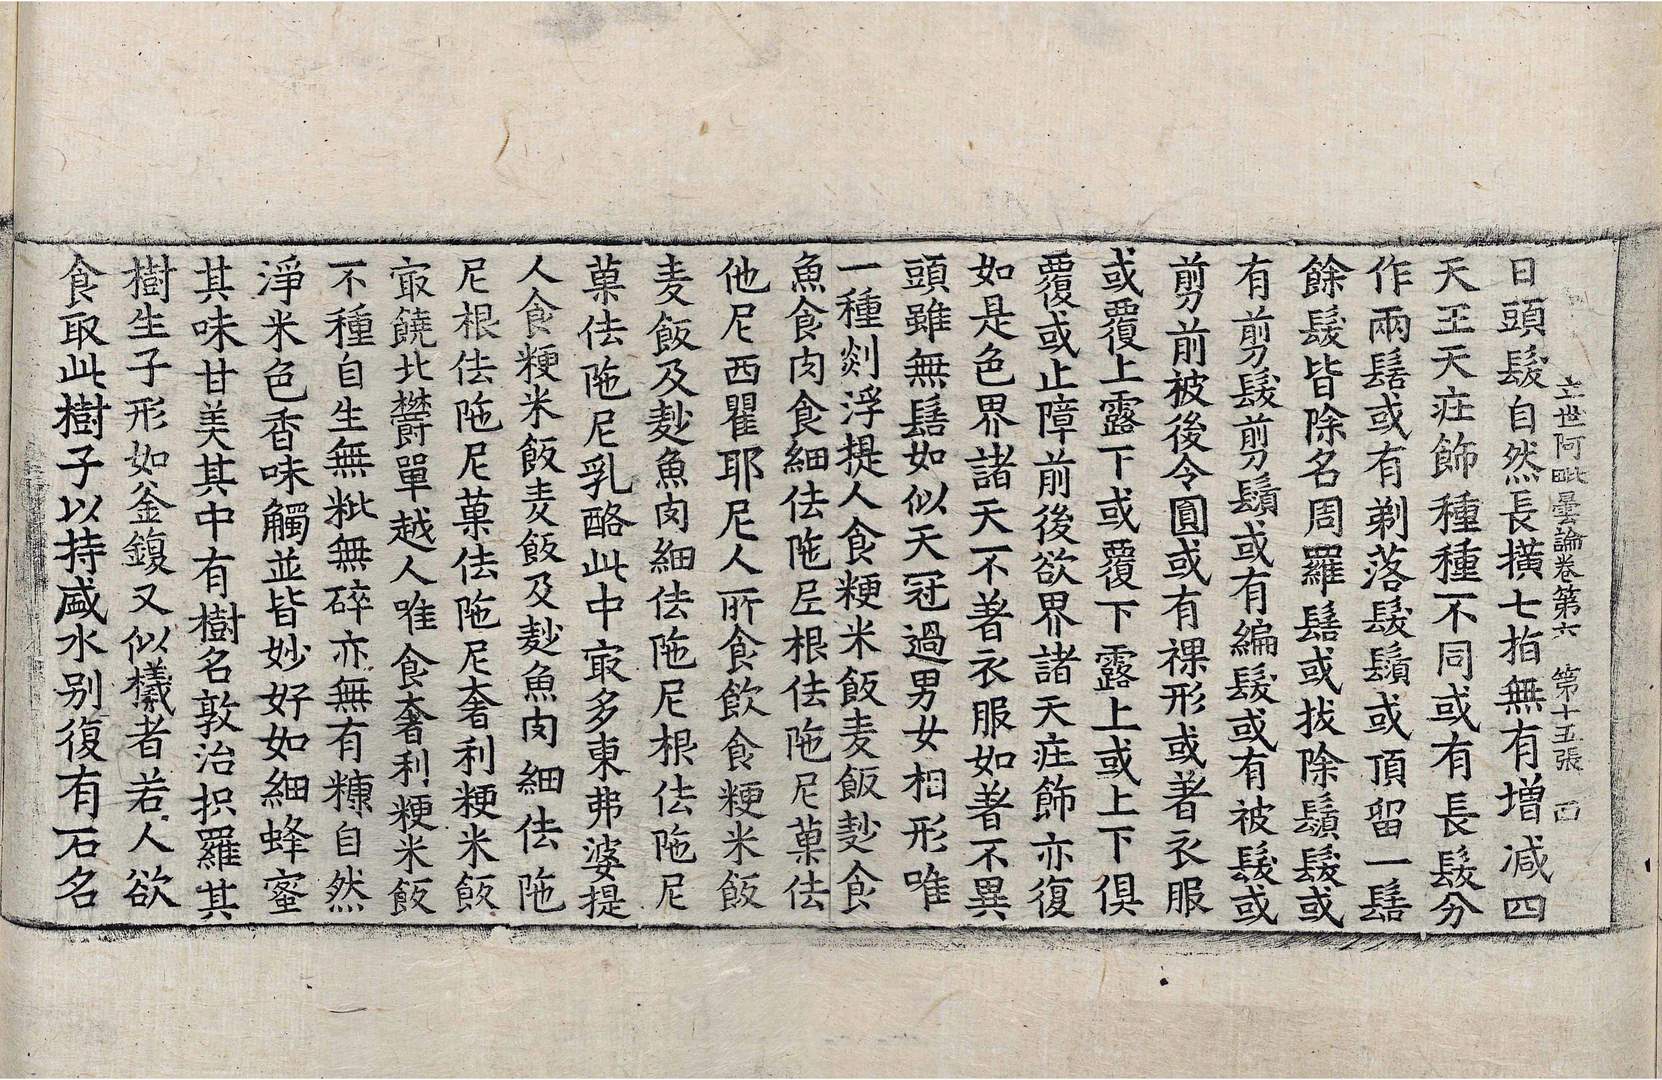 立世阿毗曇論卷第六 第十五張
日頭髮自然長横七指無有增减四
天王天疘飾種種不同或有長髮分
作兩髻或有剃落髮鬚或頂留一髻
餘髮皆除名周羅髻或拔除鬚髮或
有剪髮剪鬚或有編髮或有被髮或
剪前被後令圓或有祼形或著衣服
或覆上露下或覆下露上或上下俱
覆或止障前後欲界諸天疘飾亦復
如是色界諸天不著衣服如著不異
頭雖無髻如似天冠過男女相形唯
一種剡浮提人食粳米飯麦飯麨食
魚食肉食細佉陁尼根佉陁尼菓佉
他尼西瞿耶尼人所食飲食粳米飯
麦飯及麨魚肉細佉陁尼根佉陁尼
菓佉陁尼乳酪此中㝡多東弗婆提
人食粳米飯麦飯及麨魚肉細佉陁
尼根佉陁尼菓佉陁尼奢利粳米飯
㝡饒北欝單越人唯食奢利粳米飯
不種自生無粃無碎亦無有糠自然
淨米色香味觸並皆妙好如細蜂蜜
其味甘美其中有樹名敦治抧羅其
樹生子形如釜鍑又似檥者若人欲
食取此樹子以持盛水别復有石名